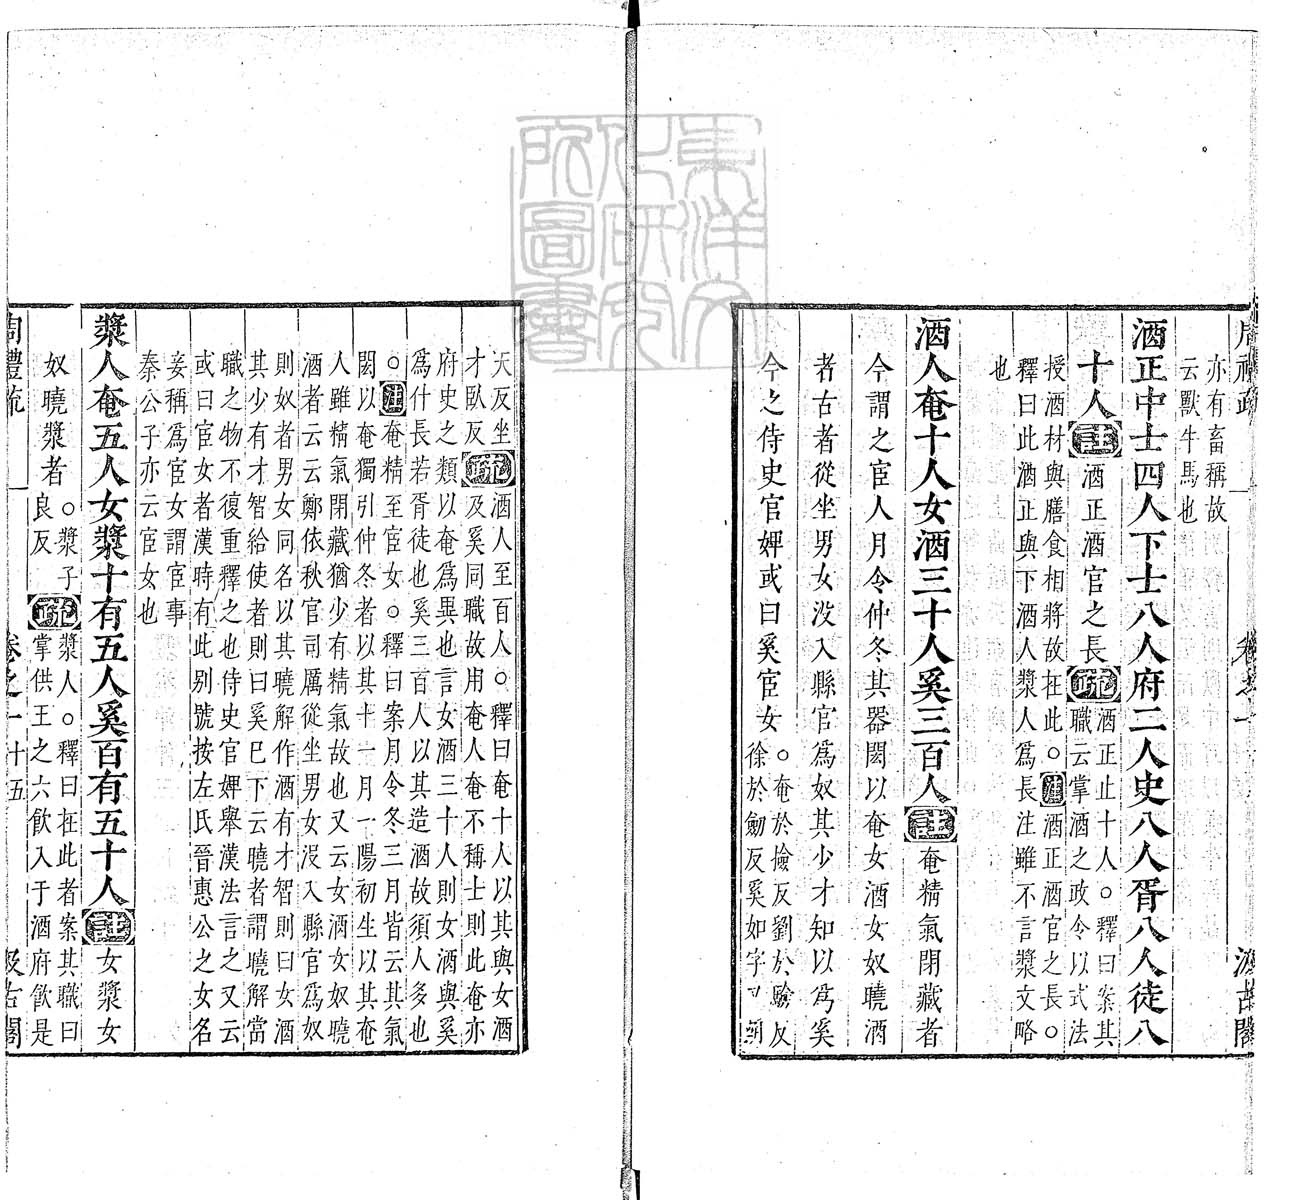 亦有畜稱故
云獸牛馬也
酒正中士四人下士八人府二人史八人胥八人徒八
十人註酒正酒官之長疏酒正止十人○釋曰案其
職云掌酒之政令以式法
授酒材與膳食相將故在此○注酒正酒官之長○
釋曰此酒正與下酒人漿人爲長注雖不言漿文略
也
酒人奄十人女酒三十人奚三百人註奄精氣閉藏者
今謂之宦人月令仲冬其器閎以奄女酒女奴曉酒
者古者從坐男女没入縣官爲奴其少才知以爲奚
今之侍史官婢或曰奚宦女○奄於撿反劉於驗反
徐於劒反奚如字又胡
天反坐
才臥反疏酒人至百人○釋曰奄十人以其與女酒
及奚同職故用奄人奄不稱士則此奄亦
府史之類以奄爲異也言女酒三十人則女酒與奚
爲什長若胥徒也奚三百人以其造酒故須人多也
○注奄精至宦女○釋曰案月令冬三月皆云其氣
閎以奄獨引仲冬者以其十一月一陽初生以其奄
人雖精氣閉藏猶少有精氣故也又云女酒女奴曉
酒者云云鄭依秋官司厲從坐男女没入縣官爲奴
則奴者男女同名以其曉解作酒有才智則曰女酒
其少有才智給使者則曰奚巳下云曉者謂曉解當
職之物不復重釋之也侍史官婢舉漢法言之又云
或曰宦女者漢時有此别號按左氏晉惠公之女名
妾稱爲宦女謂宦事
秦公子亦云宦女也
漿人奄五人女漿十有五人奚百有五十人註女漿女
奴曉漿者○漿子
良反疏漿人○釋曰在此者案其職曰
掌供王之六飲入于酒府飲是
周禮疏 卷之一 十五 汲古閣